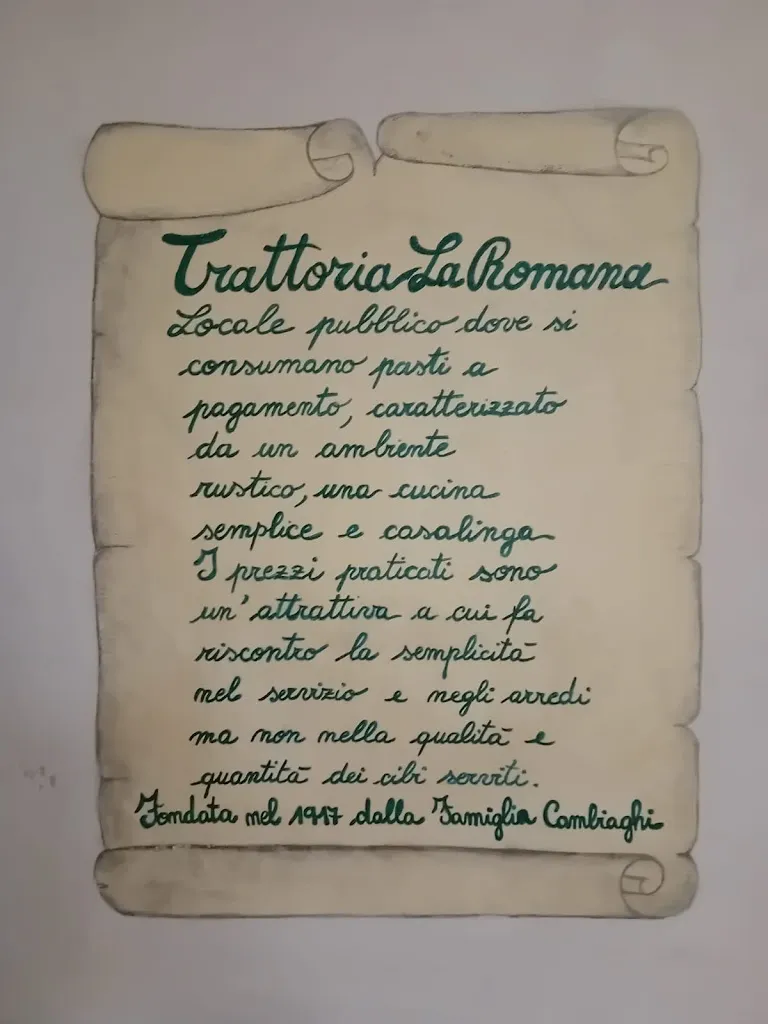 Trattoria La Romana
Locale pubblico dove si
consumano pasti a
pagamento, caratterizzato
da un ambiente
rustico, una cucina
semplice e casalinga
I prezzi praticati sono
un'attrattiva a cui fa
riscontro la semplicità
nel servizio e negli arredi
ma non nella qualità e
quantità dei cibi serviti.
Fondata nel 1917 dalla Famiglia Cambiaghi